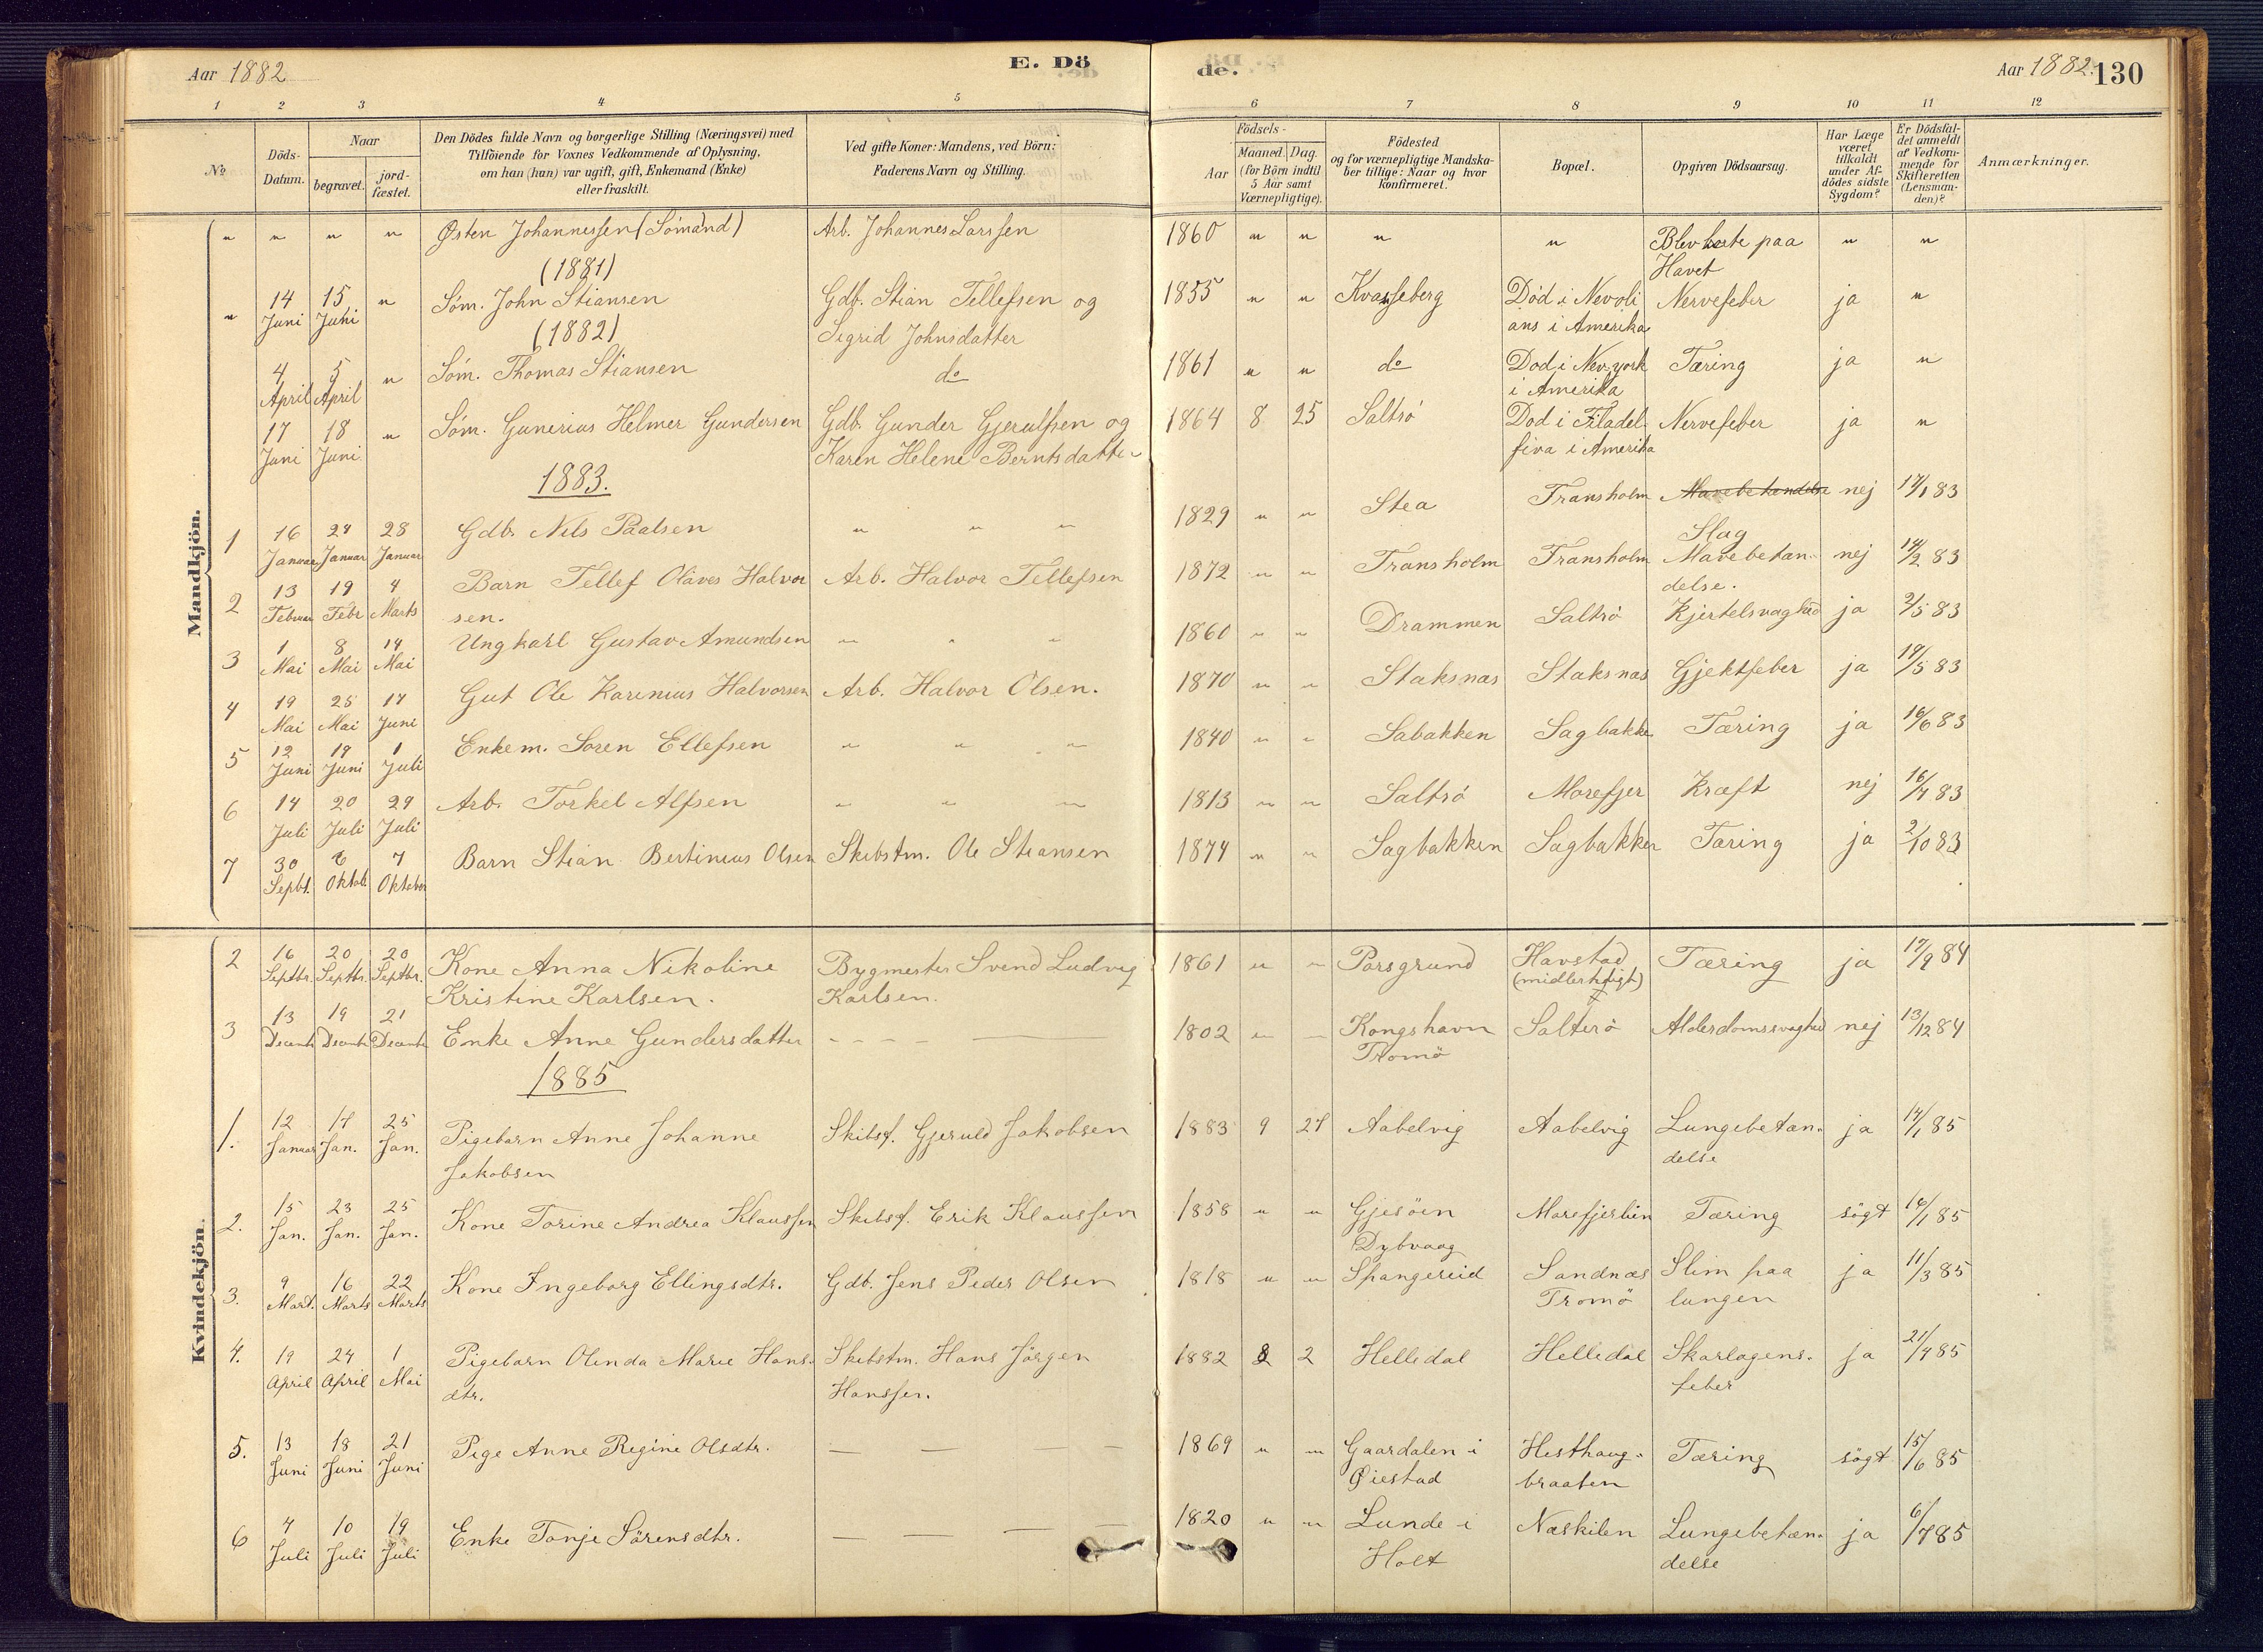 Aar 1882
E. Dö
de.
Aar 1882. 130
1 2 3 4 5 6 7 8 9 10 11 12
No
Döds-Datum.
Naar
begravet.
jord-fæstet.
Den Dödes fulde Navn og borgerlige Stilling (Næringsvei) med
Tilföiende for Voxnes Vedkommende af Oplysning,
om han (hun) var ugift, gift, Enkemand (Enke)
eller fraskilt.
Ved gifte Koner: Mandens, ved Börn:
Faderens Navn og Stilling.
Födsels-
Aar
Maaned. Dag.
(for Börn indtil
5 Aar samt
Værnepligtige).
Födested
og for værnepligtige Mandska-
ber tillige: Naar og hvor
konfirmeret.
Bopæl.
Opgiven Dödsaarsag.
Har Læge
været
tilkaldt
under Af-
dödes sidste
Sygdom?
Er Dödsfal-
det anmeldt
af Vedkom-
mende for
Skifteretten
(Lensman-
den)?
Anmærkninger.
Mandkjön.
" " " " Østen Johannessen (Sömand) Arb. Johannes Larssen 1860 " " " " Blev borte paa " "
Havet
(1881)
" 14 15 " Söm. John Stiansen Gdb. Stian Tellefsen og 1855 " " Kvasseberg Död i Nevoli Nervefeber ja "
Juni Juni Sigrid Johnsdatter ans i Amerika
(1882)
4 5 " Söm. Thomas Stiansen do 1861 " " do Dod i Nevyork Tæring ja "
April April i Amerika
17 18 " Söm. Gunerius Helmer Gundersen Gdb. Gunder Gjerulfsen og 1864 8 25 Saltrö Dod i Filadel Nervefeber ja "
Juni Juni Karen Helene Berntsdatter fiva i Amerika
1883.
1 16 24 28 Gdb. Nils Paalsen " " " 1829 " " Stea Fransholm Mavebetændelse nej 17/1 83
Januar Januar Januar Slag
2 13 19 4 Barn Tellef Olaves Halvor Arb. Halvor Tellefsen 1872 " " Fransholm Fransholm Mavebetan- nej 14/2 83
Februar Febr Marts sen. delse.
3 1 8 14 Ungkarl Gustav Amundsen " " " 1860 " " Drammen Saltrö Kjertelsvaghed ja 2/5 83
Mai Mai Mai
4 19 25 17 Gut Ole Karenius Halvorsen Arb. Halvor Olsen. 1870 " " Staksnas Staksnas Gjektfeber ja 19/5 83
Mai Mai Juni
5 12 19 1 Enkem. Soren Ellefsen " " " 1840 " " Sabakken Sagbakken Tæring ja 16/6 83
Juni Juni Juli
6 14 20 29 Arb. Torkel Alfsen " " " 1813 " " Saltrö Morefjer Kræft nej 16/7 83
Juli Juli Juli
7 30 6 7 Barn Stian Bertinius Olsen Skibstm. Ole Stiansen 1874 " " Sagbakken Sagbakken Tæring ja 2/10 83
Septbt. Oktob. Oktober
Kvindekjön.
2 16 20 20 Kone Anna Nikoline Bygmester Svend Ludvig 1861 " " Porsgrund Havstad Tæring ja 17/9 84
Septbr. Septbr. Septbr. Kristine Karlsen. Karlsen. (midlertidigt)
3 13 19 21 Enke Anne Gundersdatter 1802 " Kongshavn Salterö Alderdomssvaghed nej 13/12 84
Decembr Decembr Decembr Tromö
1885
1. 12 17 25 Pigebarn Anne Johanne Skibsf. Gjeruld Jakobsen 1883 9 27 Aabelvig Aabelvig Lungebetæn- ja 14/1 85
Januar Jan. Jan. Jakobsen delse
2. 15 23 25 Kone Torine Andrea Klaussen Skibsf. Erik Klaussen 1858 " " Gjesöen Morefjerlien Tæring sögt 16/1 85
Jan. Jan. Jan. Dybvaag
3. 9 16 22 Kone Ingeborg Ellingsdtr. Gdb. Jens Peder Olsen 1818 " " Spangereid Sandnæs Slim paa ja 11/3 85
Mart. Marts Marts Tromö lungen
4. 19 24 1 Pigebarn Olinda Marie Hans- Skibstm. Hans Jörgen 1882 8 2 Helledal Helledal Skarlagens- ja 21/4 85
April April Mai dtr. Hanssen. feber
5. 13 18 21 Pige Anne Regine Olsdtr. — — — — 1869 " " Gaardalen i Hesthaug- Tæring sögt 15/6 85
Juni Juni Juni Øiestad braaten
6 4 10 19 Enke Tonje Sörensdtr. — — — — 1820 " " Lunde i Næskilen Lungebetæn- ja 6/7 85
Juli Juli Juli Holt delse